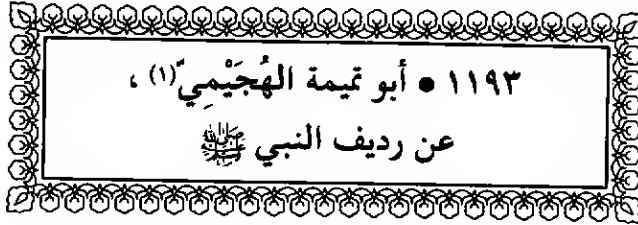 ١١٩٣ • أبو تميمة الهُجَيْمِيّ(١)،
عن رديف النبي ﷺ